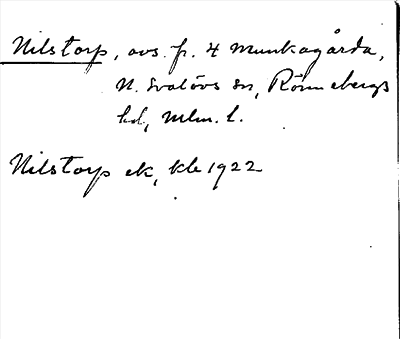 Nilstorp, avs. fr. 4 Munkagårda,
N. Svalövs sn, Rönnebergs
hd, Mlm. l.
Nilstorp ek, kbl 1922